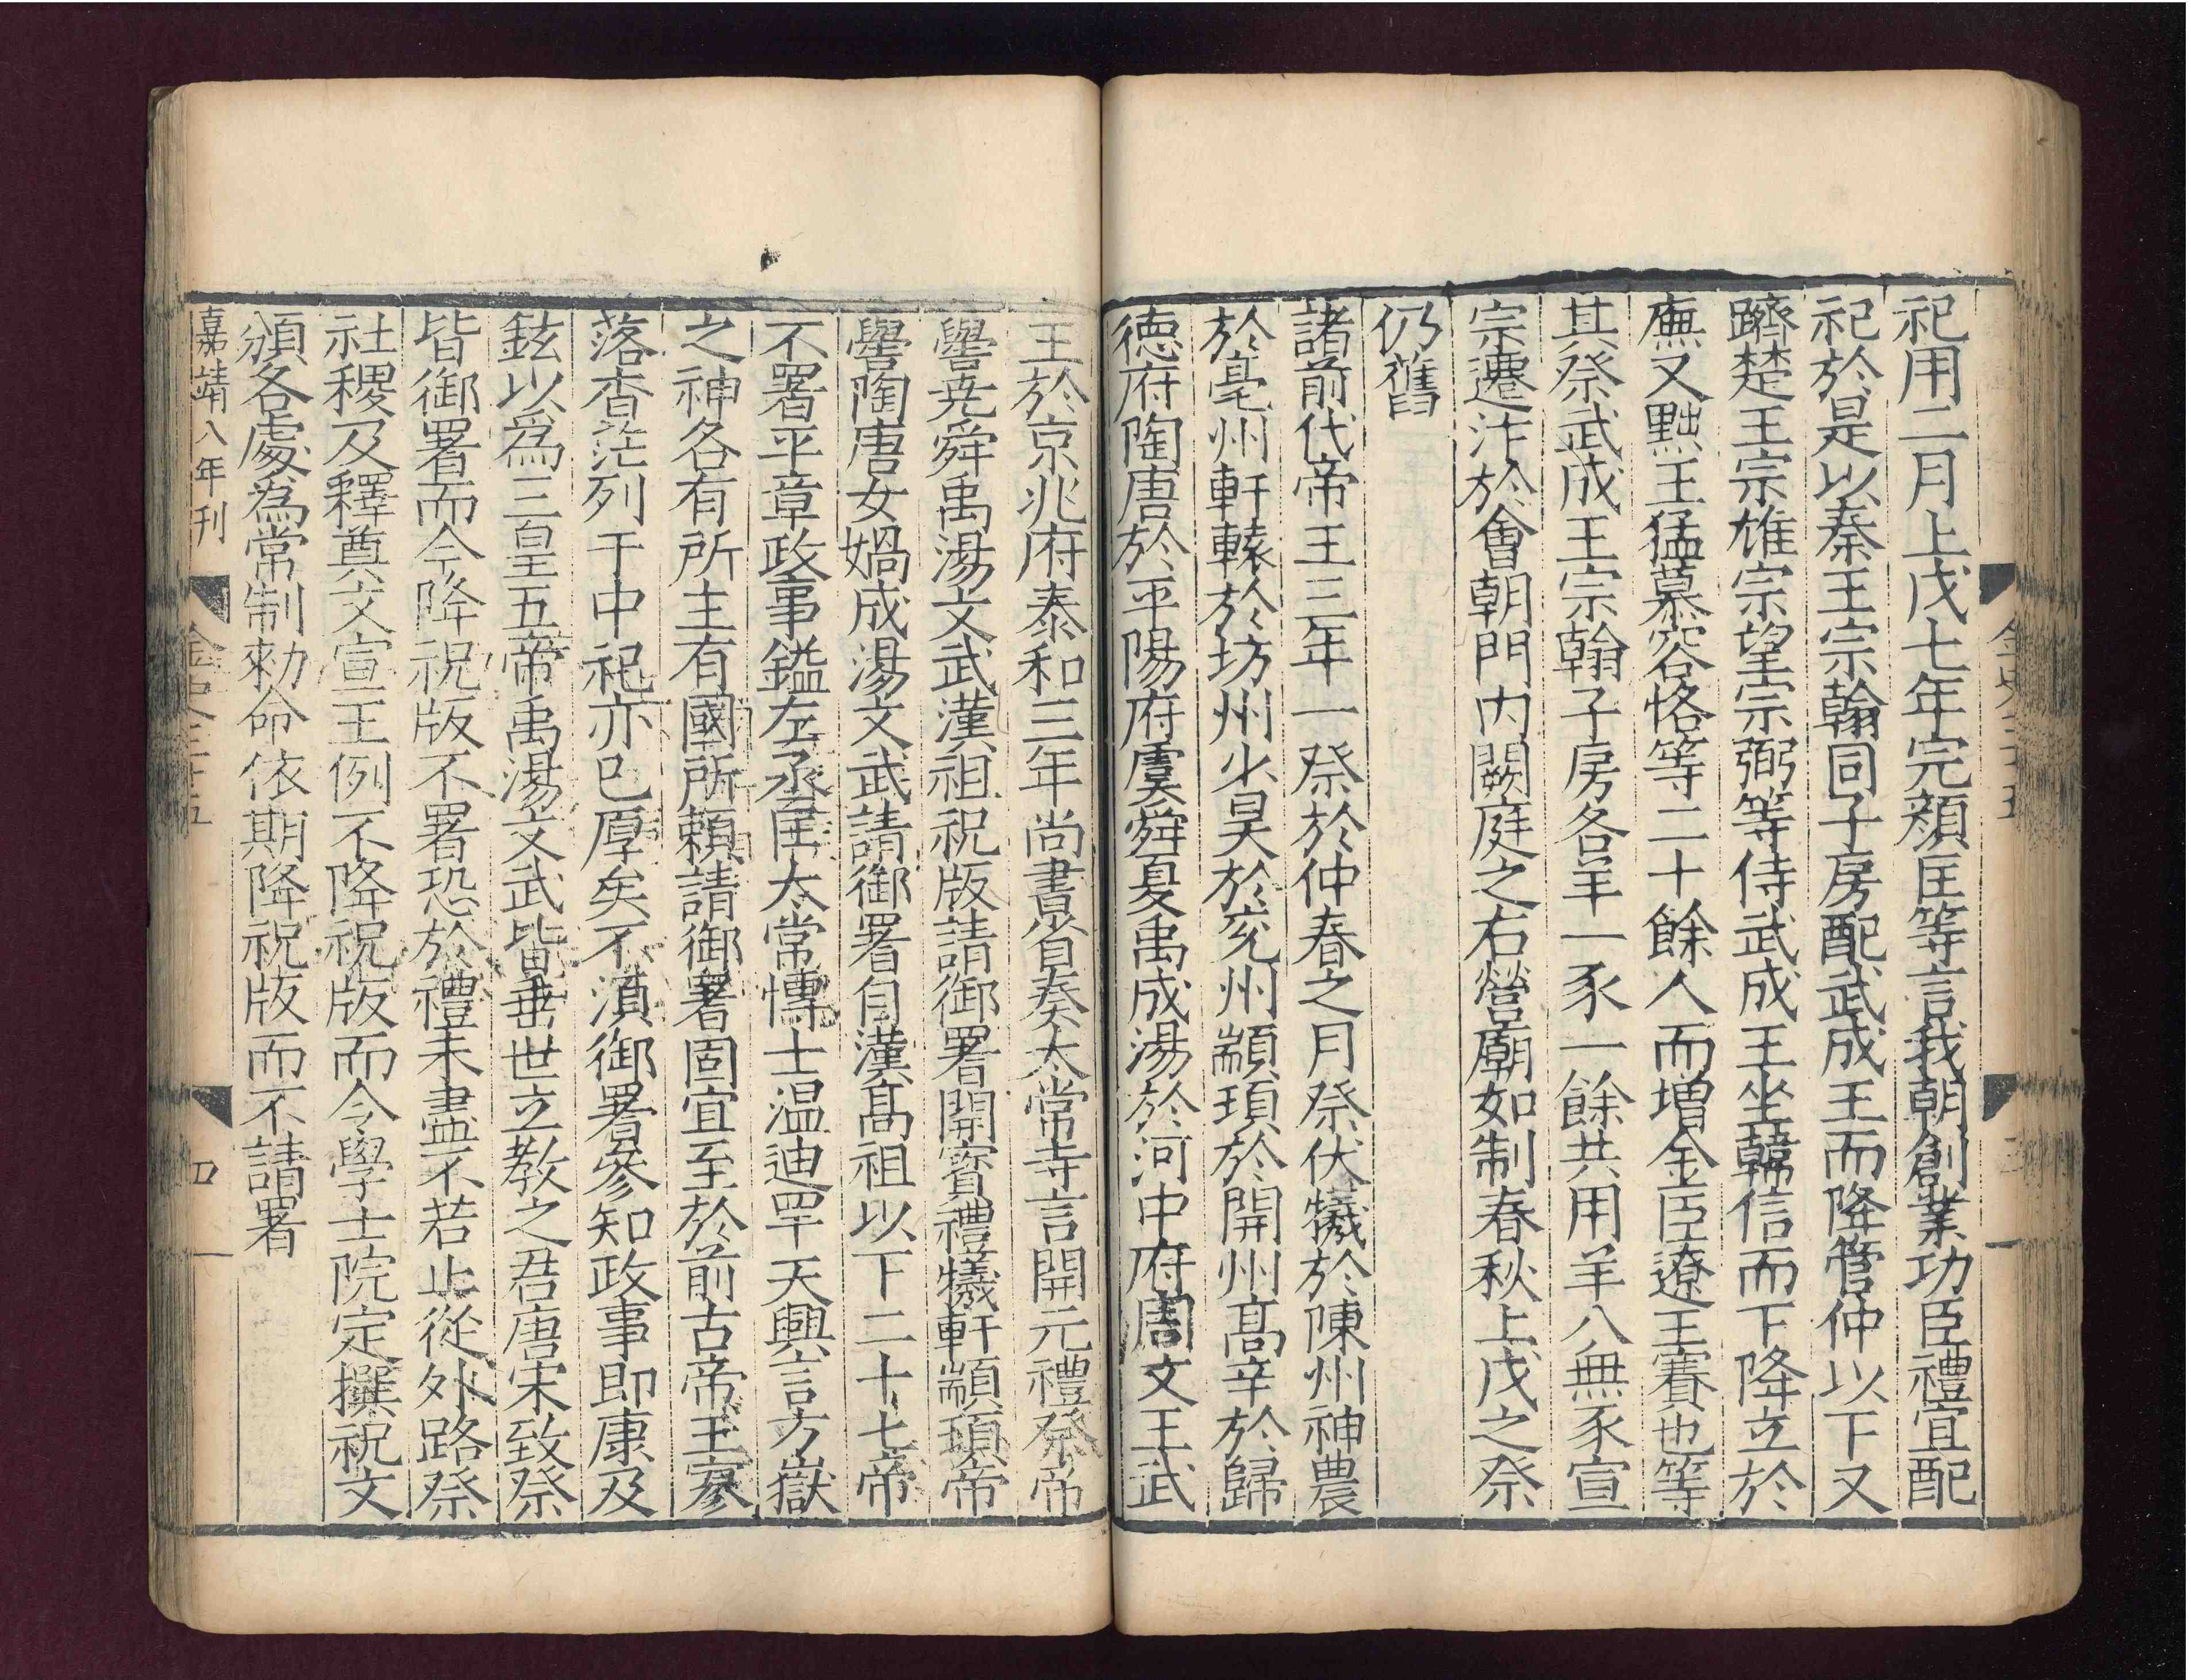 祀用二月上戊七年完顔匡等言我朝創業功臣禮宜配
祀於是以秦王宗翰同子房配武成王而降管仲以下又
躋楚王宗雄宗望宗弼等侍武成王坐韓信而下降立於
廡又黜王猛慕容恪等二十餘人而增金臣遼王賽也等
其祭武成王宗翰子房各羊一豕一餘共用羊八無豕宣
宗遷汴於會朝門内闕庭之右營廟如制春秋上戊之祭
仍舊
諸前代帝王三年一祭於仲春之月祭伏犧於陳州神農
於亳州軒轅於坊州少昊於兖州顓頊於開州髙辛於歸
徳府陶唐於平陽府虞舜夏禹成湯於河中府周文王武
王於京兆府泰和三年尚書省奏太常寺言開元禮祭帝
嚳尭舜禹湯文武漢祖祝版請御署開寳禮犧軒顓頊帝
嚳陶唐女媧成湯文武請御署自漢髙祖以下二十七帝
不署平章政事鎰左丞匡太常愽士温迪罕天興言方嶽
之神各有所主有國所頼請御署固宜至於前古帝王寥
落杳茫列于中祀亦已厚矣不湏御署叅知政事即康及
鉉以爲三皇五帝禹湯文武皆垂世立教之君唐宋致祭
皆御署而今降祝版不署恐於禮未盡不若止從外路祭
社稷及釋奠文宣王例不降祝版而令學士院定撰祝文
頒各處爲常制勑命依期降祝版而不請署
嘉靖八年刊
金史三十五
四